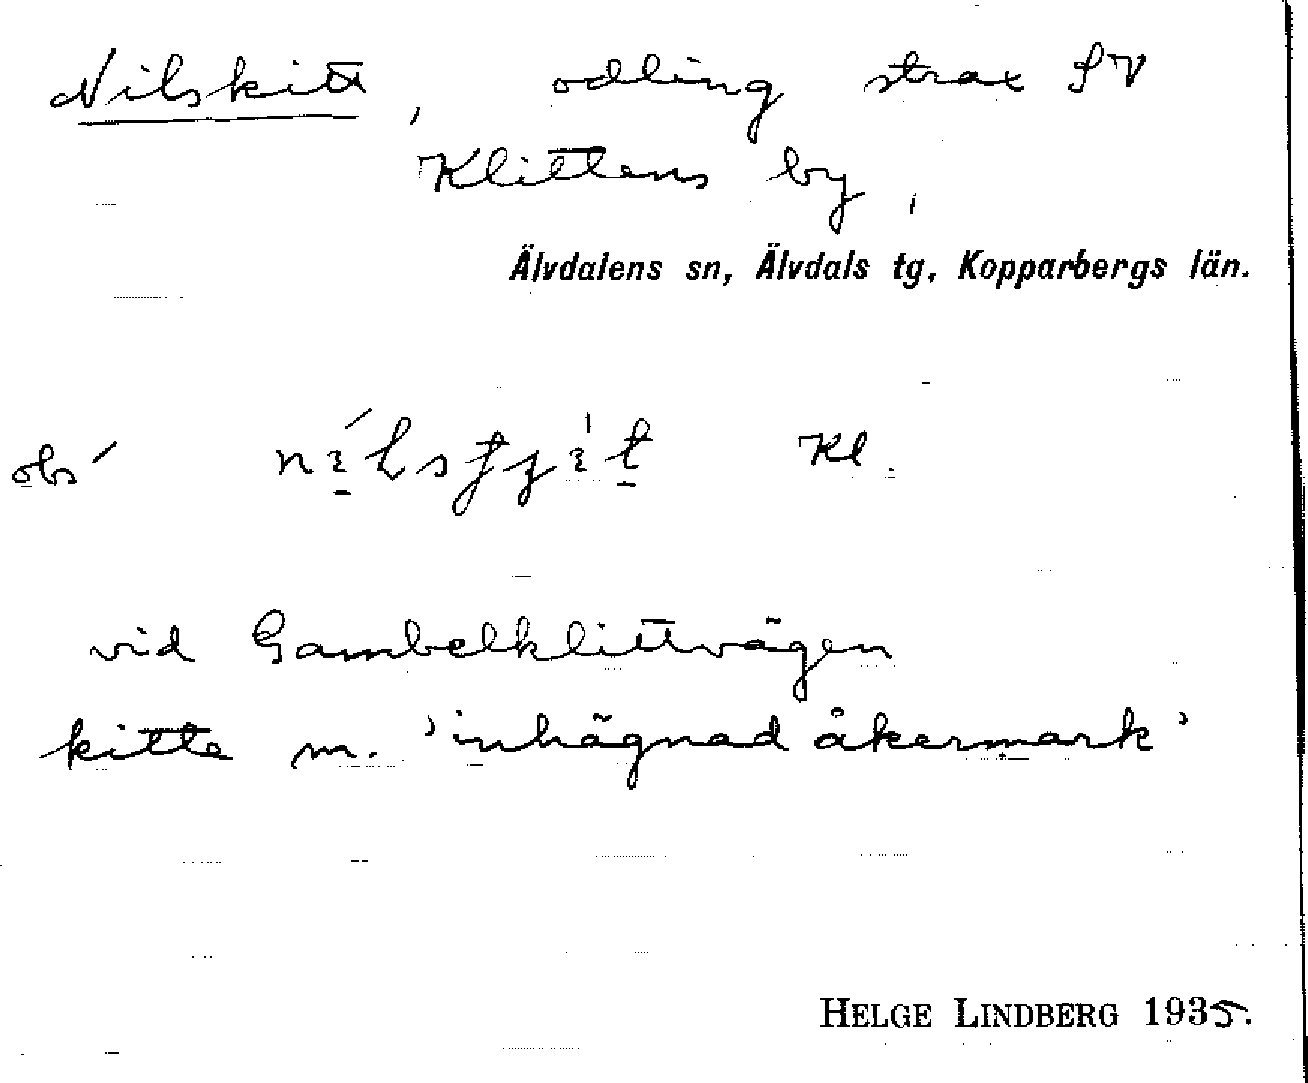 Nilskitt, odling strax SV
Klittens by,
Älvdalens sn, Älvdals tg, Kopparbergs län.
obs Kl.
vid Gambelklittvägen
kitte m. 'inhägnad åkermark'
HELGE LINDBERG 1935.